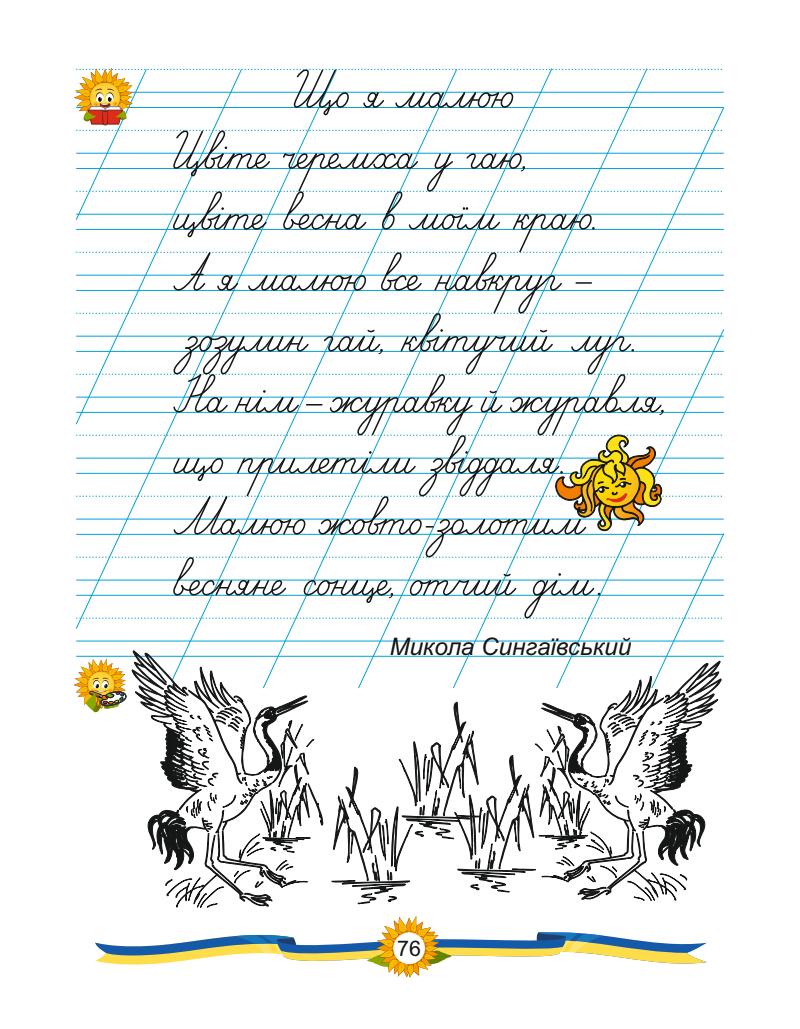 Що я малюю
Цвіте черемха у гаю,
цвіте весна в моїм краю.
А я малюю все навкруг –
зозулин гай, квітучий луг.
На нім – журавку й журавля,
що прилетіли звіддаля.
Малюю жовто-золотим
весняне сонце, отчий дім.
Микола Сингаївський
76